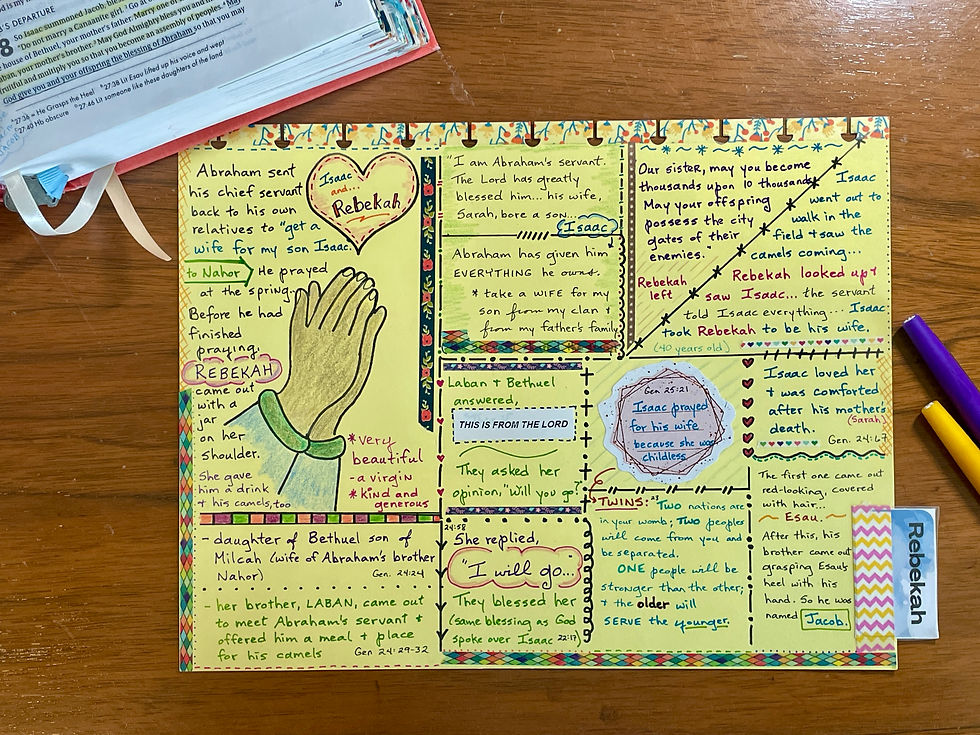 'S DEPARTURE
8 So Isaac summoned Jacob,
"Do not marry a Canaanite girl. Go at
house of Bethuel, your mother's father. Marry one of
ban, your mother's brother. May God Almighty bless you and
fruitful and multiply you so that you become an assembly of peoples. May
God give you and your offspring the blessing of Abraham so that you may
45
27:36 = He Grasps the Heel 27:38 Lit Esau lifted up his voice and wept
27:40 His obscure 27:46 Lit someone like these daughters of the land
Abraham sent
his chief servant
back to his own
relatives to "get a
wife for my son Isaac.
to Nahor He prayed
at the spring.
Before he had
finished
praying,
REBEKAH
came out
with a
jar
on her
shoulder.
She gave
him a drink
+ his camels, too
Isaac
and...
Rebekah
*very
beautiful
-a virgin
*kind and
generous
- daughter of Bethuel son of
Milcah (wife of Abraham's brother
Nahor) Gen. 24:24
- her brother, LABAN, came out
to meet Abraham's servant +
offered him a meal + place
for his camels Gen 24:29-32
"I am Abraham's servant.
The Lord has greatly
blessed him... his wife,
Sarah, bore a son...
Isaac
Abraham has given him
EVERYTHING he owns.
* take a WIFE for my
son from my clan +
from my father's family
Laban + Bethuel
answered,
THIS IS FROM THE LORD
They asked her
opinion, "Will you go?
24:58
She replied,
"I will go..."
They blessed her
(same blessing as God
spoke over Isaac 22:17)
Our sister, may you become
thousands upon 10 thousands.
May your offspring
possess the city
gates of their
enemies."
Rebekah
left
Isaac
went out to
walk in the
field + saw the
camels coming...
Rebekah looked up +
saw Isaac... the servant
told Isaac everything... Isaac
took Rebekah to be his wife.
(40 years old)
Gen 25:21
Isaac prayed
for his wife
because she was
childless.
Isaac loved her
+ was comforted
after his mother's
(Sarah)
death.
Gen. 24:67
TWINS: 23 "TWO nations are
in your womb; TWO peoples
will come from you and
be separated.
ONE people will be
stronger than the other,
+ the older will
SERVE the younger.
The first one came out
red-looking, covered
with hair...
~ Esau. ~
After this, his
brother came out
grasping Esau's
heel with his
hand. So he was
named Jacob.
Rebekah